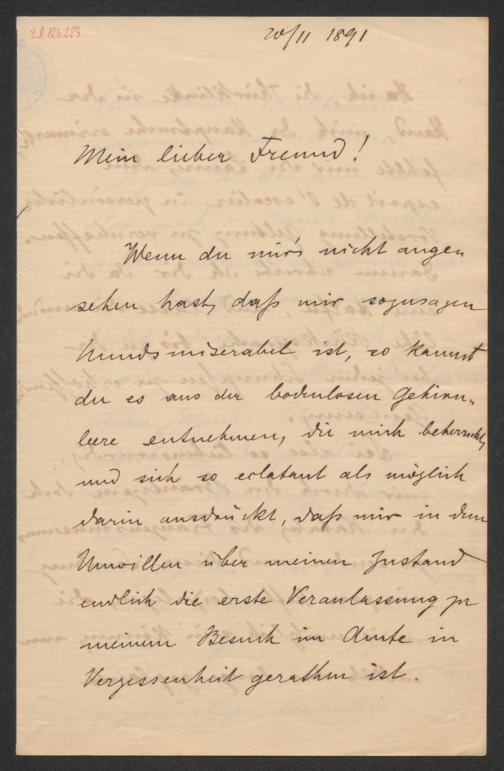 I.N. 126.253
20/11 1891
Mein lieber Freund!
Wenn du mir's nicht ange
sehen hast, daß mir sozusagen
hundsmiserabel ist, so kannst
du es aus der bodenlosen Gehirn-
leere entnehmen, die mich beherrscht,
und sich so eclatant als möglich
darin ausdrückt, daß mir in dem
Unwillen über meinen Zustand
endlich die erste Veranlassung zu
meinem Besuch im Amte in
Vergessenheit gerathen ist.